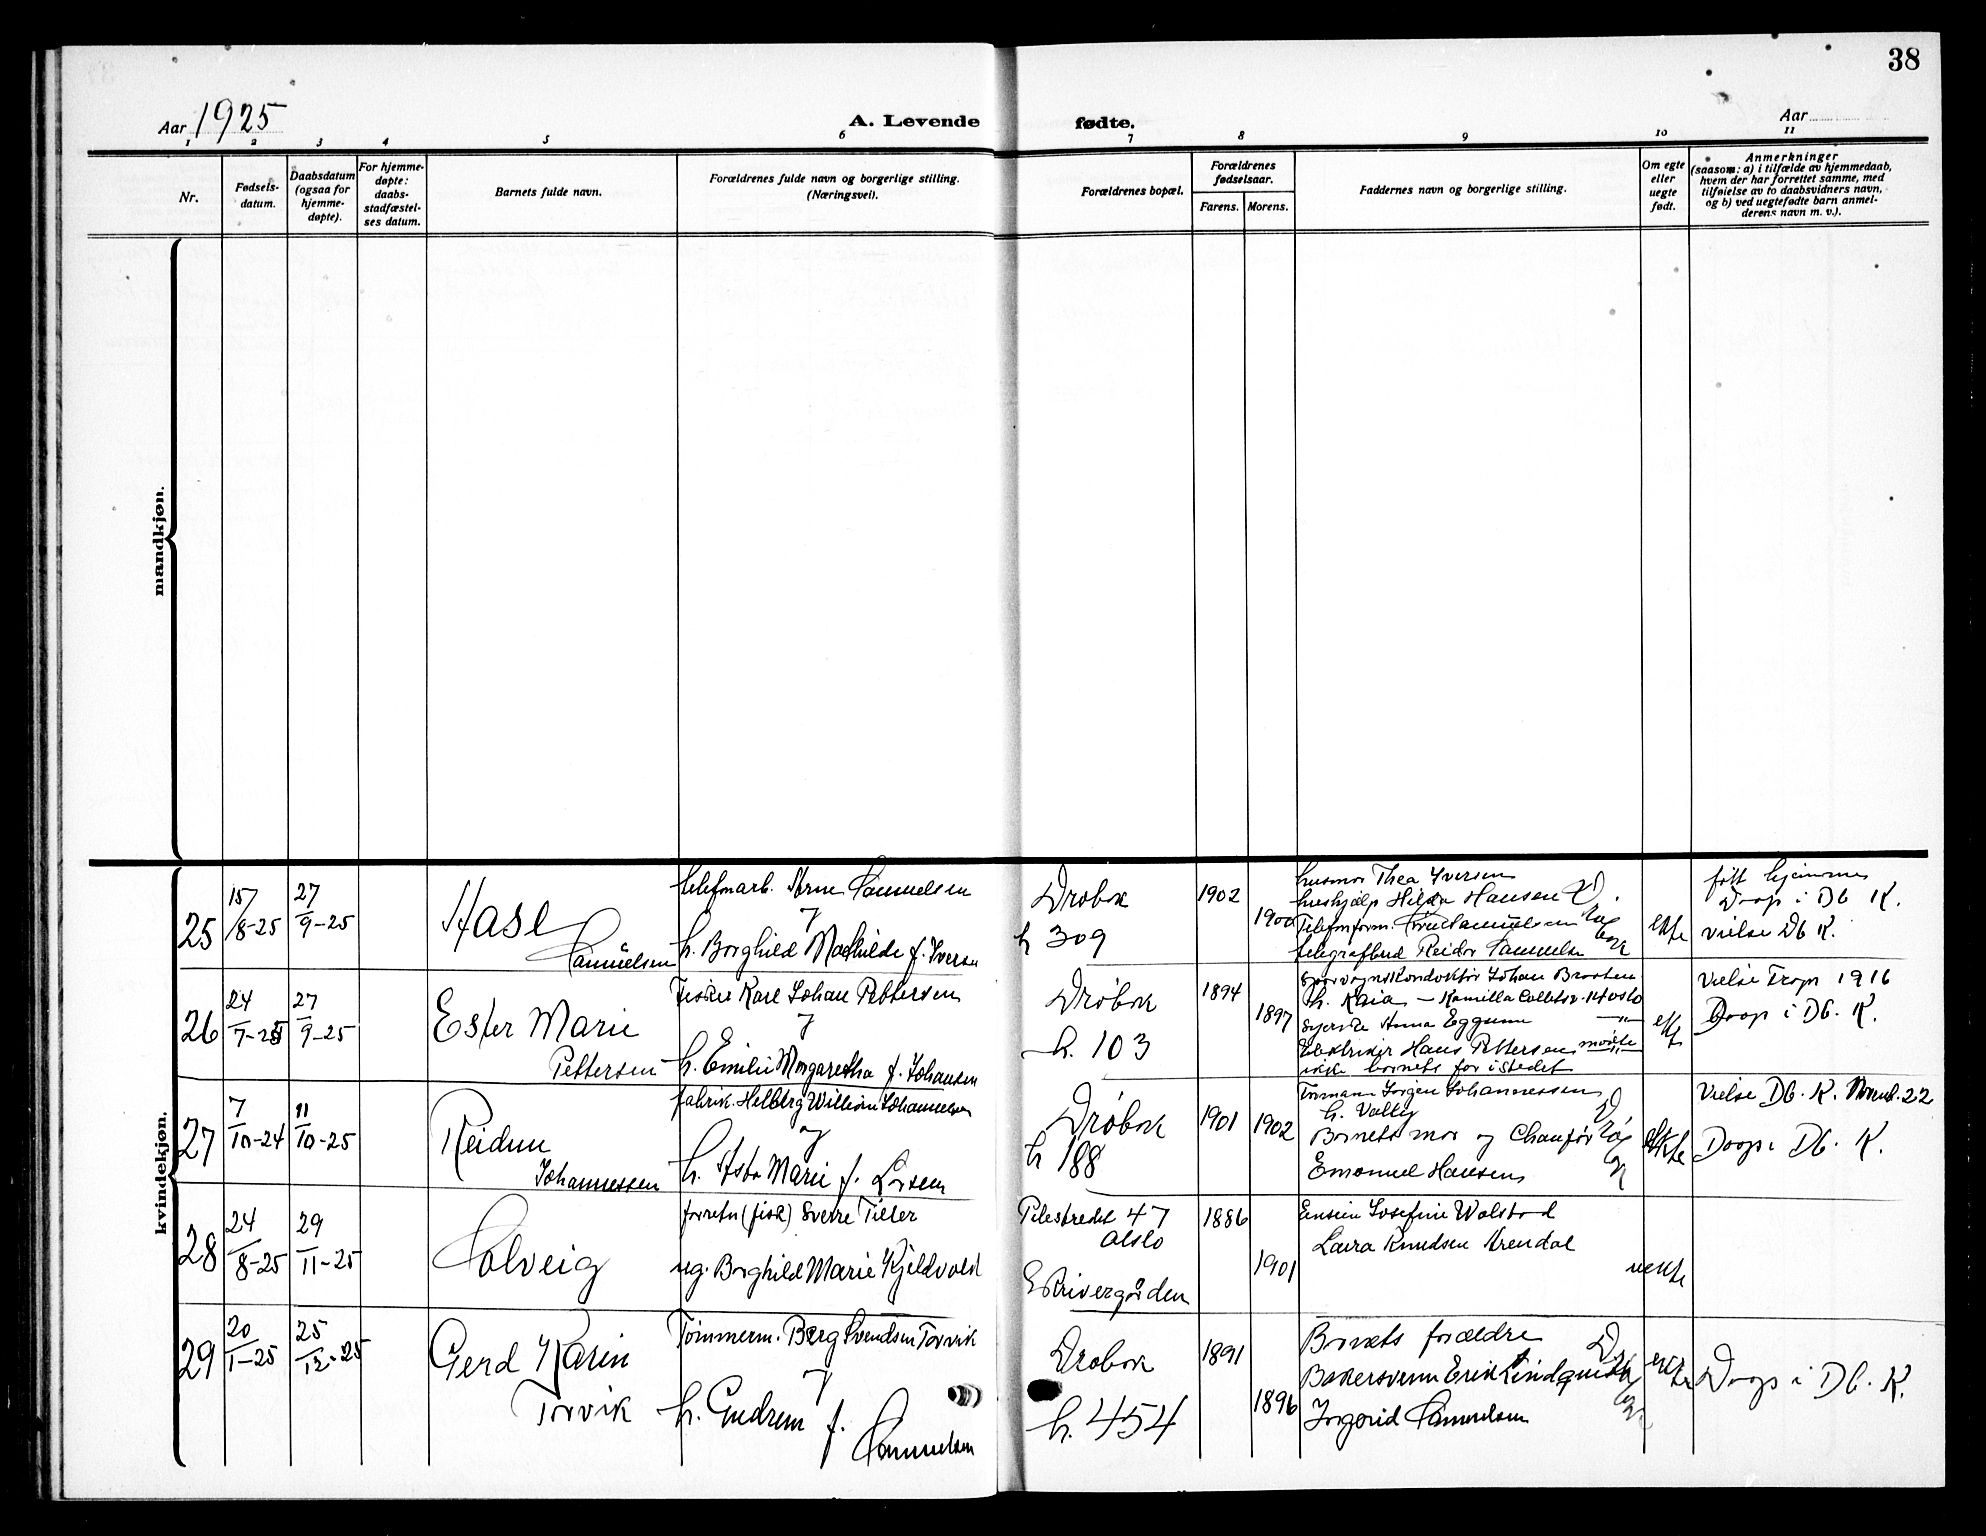 38
Aar 1925
A. Levende
fødte.
Aar
1 2 3 4 5 6 7 8 9 10 11
Nr.
Fødsels-
datum.
Daabsdatum
(ogsaa for
hjemme-
døpte).
For hjemme-
døpte:
daabs-
stadfæstel-
ses datum.
Barnets fulde navn.
Forældrenes fulde navn og borgerlige stilling.
(Næringsvei).
Forældrenes bopæl.
Forældrenes
fødselsaar.
Farens. Morens.
Faddernes navn og borgerlige stilling.
Om egte
eller
uegte
født.
Anmerkninger
(saasom: a) i tilfælde av hjemmedaab,
hvem der har forrettet samme, med
tilføielse av to daabsvidners navn,
og b) ved uegtefødte barn anmel-
derens navn m. v.).
mandkjøn.
kvindekjøn.
25
15/8-25
27/9-25
Åase
Samuelsen
telefonarb. Arne Samuelsen
og
h. Borghild Mathilde f. Iversen
Drøbak
h 309
1902
1900
husmor Thea Iversen
hushjælp Hilda Hansen
telegrafbud Reidar Samuelsen
ekte
født hjemme
Doop i Db K.
vielse Db K.
26
24/7-25
27/9-25
Ester Marie
Pettersen
Fisker Karl Johan Pettersen
og
h. Emilie Margaretha f. Johansen
Drøbak
h. 103
1894
1897
Sporvognskonduktør Johan Braaten
h. Kaia
Syerske Anna Eggum
Elektriker Hans Pettersen møtte
ikke barnets far istedet
ekte
Vielse Trop 1916
Doop i Db. K.
27
7/10-24
11/10-25
Reidun
Johannessen
fabrik. Helberg William Johannessen
og
h. Asta Marie f. Larsen
Drøbak
h 188
1901
1902
Tømmerm Jørgen Johannessen
h. Valby
Barnets mor og Chauffør
Emanuel Hansen
ekte
Vielse Db. K. Novemb. 22
Doop i Db. K.
28
24/8-25
29/11-25
Solveig
forretn (fisk) Sverre Tiller
ug. Borghild Marie Kjeldvold
Pilestredet 47
Oslo
E Skrivergården
1886
1901
Enslin Josefine Walstad
Laura Knudsen Arendal
uekte
29
20/1-25
25/12-25
Gerd Karin
Torvik
Tømmerm. Berg Svendsen Torvik
og
h. Gudrun f.
Samuelsen
Drøbak
h. 454
1891
1896
Barnets forældre
Bakersvenn Erik Lindquist
Ingerid Samuelsen
ekte
Doop i Db. K.